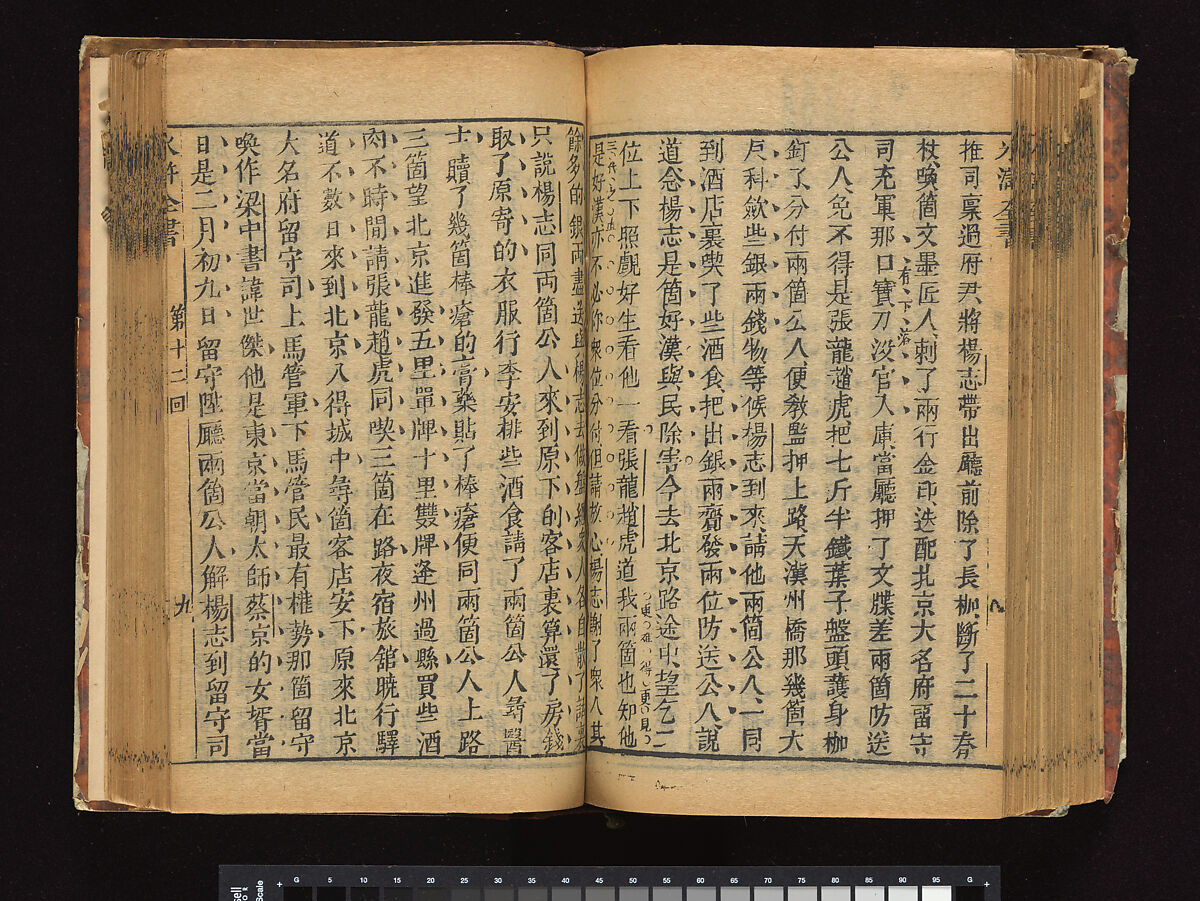 水滸全書
八
推司稟過府尹將楊志帶出廳前除了長枷斷了二十脊
杖喚箇文墨匠人刺了兩行金印迭配北京大名府留守
司充軍那口寶刀没官入庫當廳押了文牒差兩箇防送
有下落
公人免不得是張龍趙虎把七斤半鐵葉子盤頭護身枷
釘了分付兩箇公人便敎監押上路天漢州橋那幾箇大
戶科歛些銀兩錢物等候楊志到來請他兩箇公人一同
到酒店裏喫了些酒食把出銀兩齎發兩位防送公人說
道念楊志是箇好漢與民除害今去北京路途中望乞二
更難得更見
位上下照覷好生看他一看張龍趙虎道我兩箇也知他
三代之直
是好漢亦不必你衆位分付但請放心楊志謝了衆人其
餘多的銀兩盡送與楊志去做盤纏衆人各自散了話裏
只說楊志同兩箇公人來到原下的客店裏算還了房錢
取了原寄的衣服行李安排些酒食請了兩箇公人尋醫
士贖了幾箇棒瘡的膏藥貼了棒瘡便同兩箇公人上路
三箇望北京進發五里單牌十里雙牌逢州過縣買些酒
肉不時間請張龍趙虎同喫三箇在路夜宿旅館曉行驛
道不數日來到北京入得城中尋箇客店安下原來北京
大名府留守司上馬管軍下馬管民最有權勢那箇留守
喚作梁中書諱世傑他是東京當朝太師蔡京的女壻當
日是二月初九日留守陞廳兩箇公人解楊志到留守司
水滸全書
第十二回
九
Scale
G 5 10 15 20 25 30 35 40 45 50 55 60 65 70 75 80 85 90 95 G